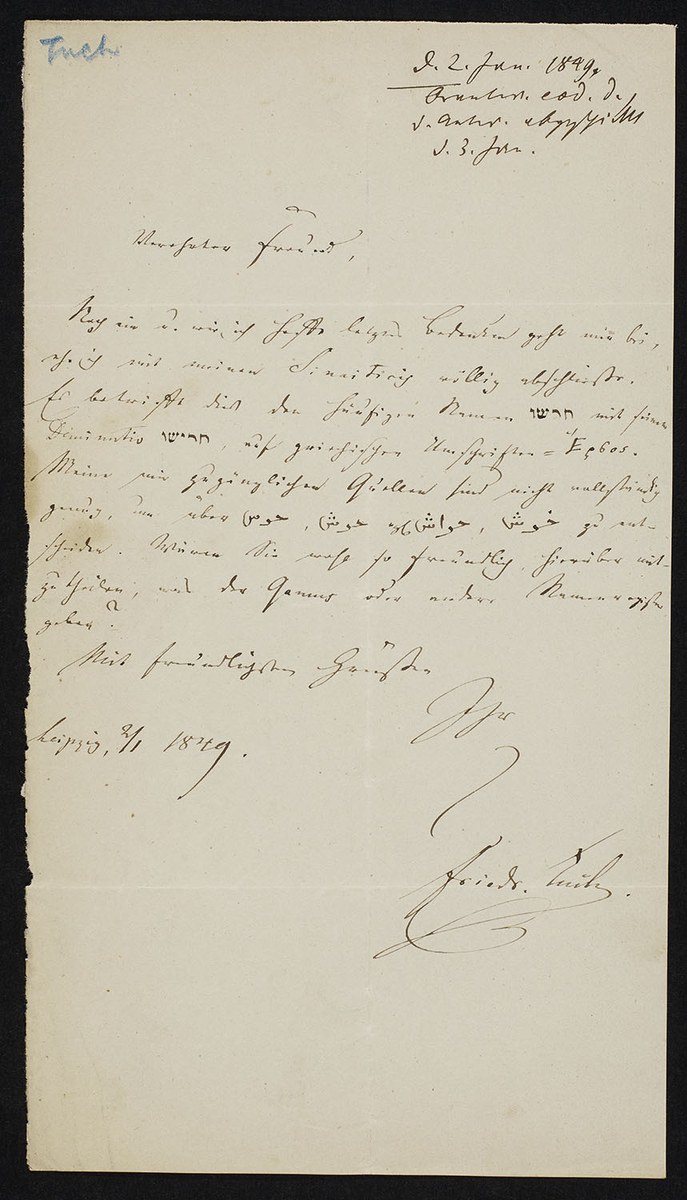 Tuch
d. 2. Jan. 1849.
Beantw. eod. d.
d. Antw. abgeschickt
d. 3. Jan.
Verehrter Freund,
Noch ein u. wie ich hoffe letztes Bedenken geht mir bei,
ehe ich mit meinen Sinaiticis völlig abschliesse.
Es betrifft dies den häufigen Namen חרישו mit seinem
Diminutiv חרישו, auf griechischen Umschriften = Ερσος.
Meine mir zugänglichen Quellen sind nicht vollständig
genug, um über حرس, حرش, خراش, خرش zu ent-
scheiden. Wären Sie wohl so freundlich, hierüber mit-
zutheilen, was der Qamus oder andere Namenregister
geben?
Mit freundlichsten Grüssen
Ihr
Leipzig, 2/1 1849.
Friedr. Tuch.